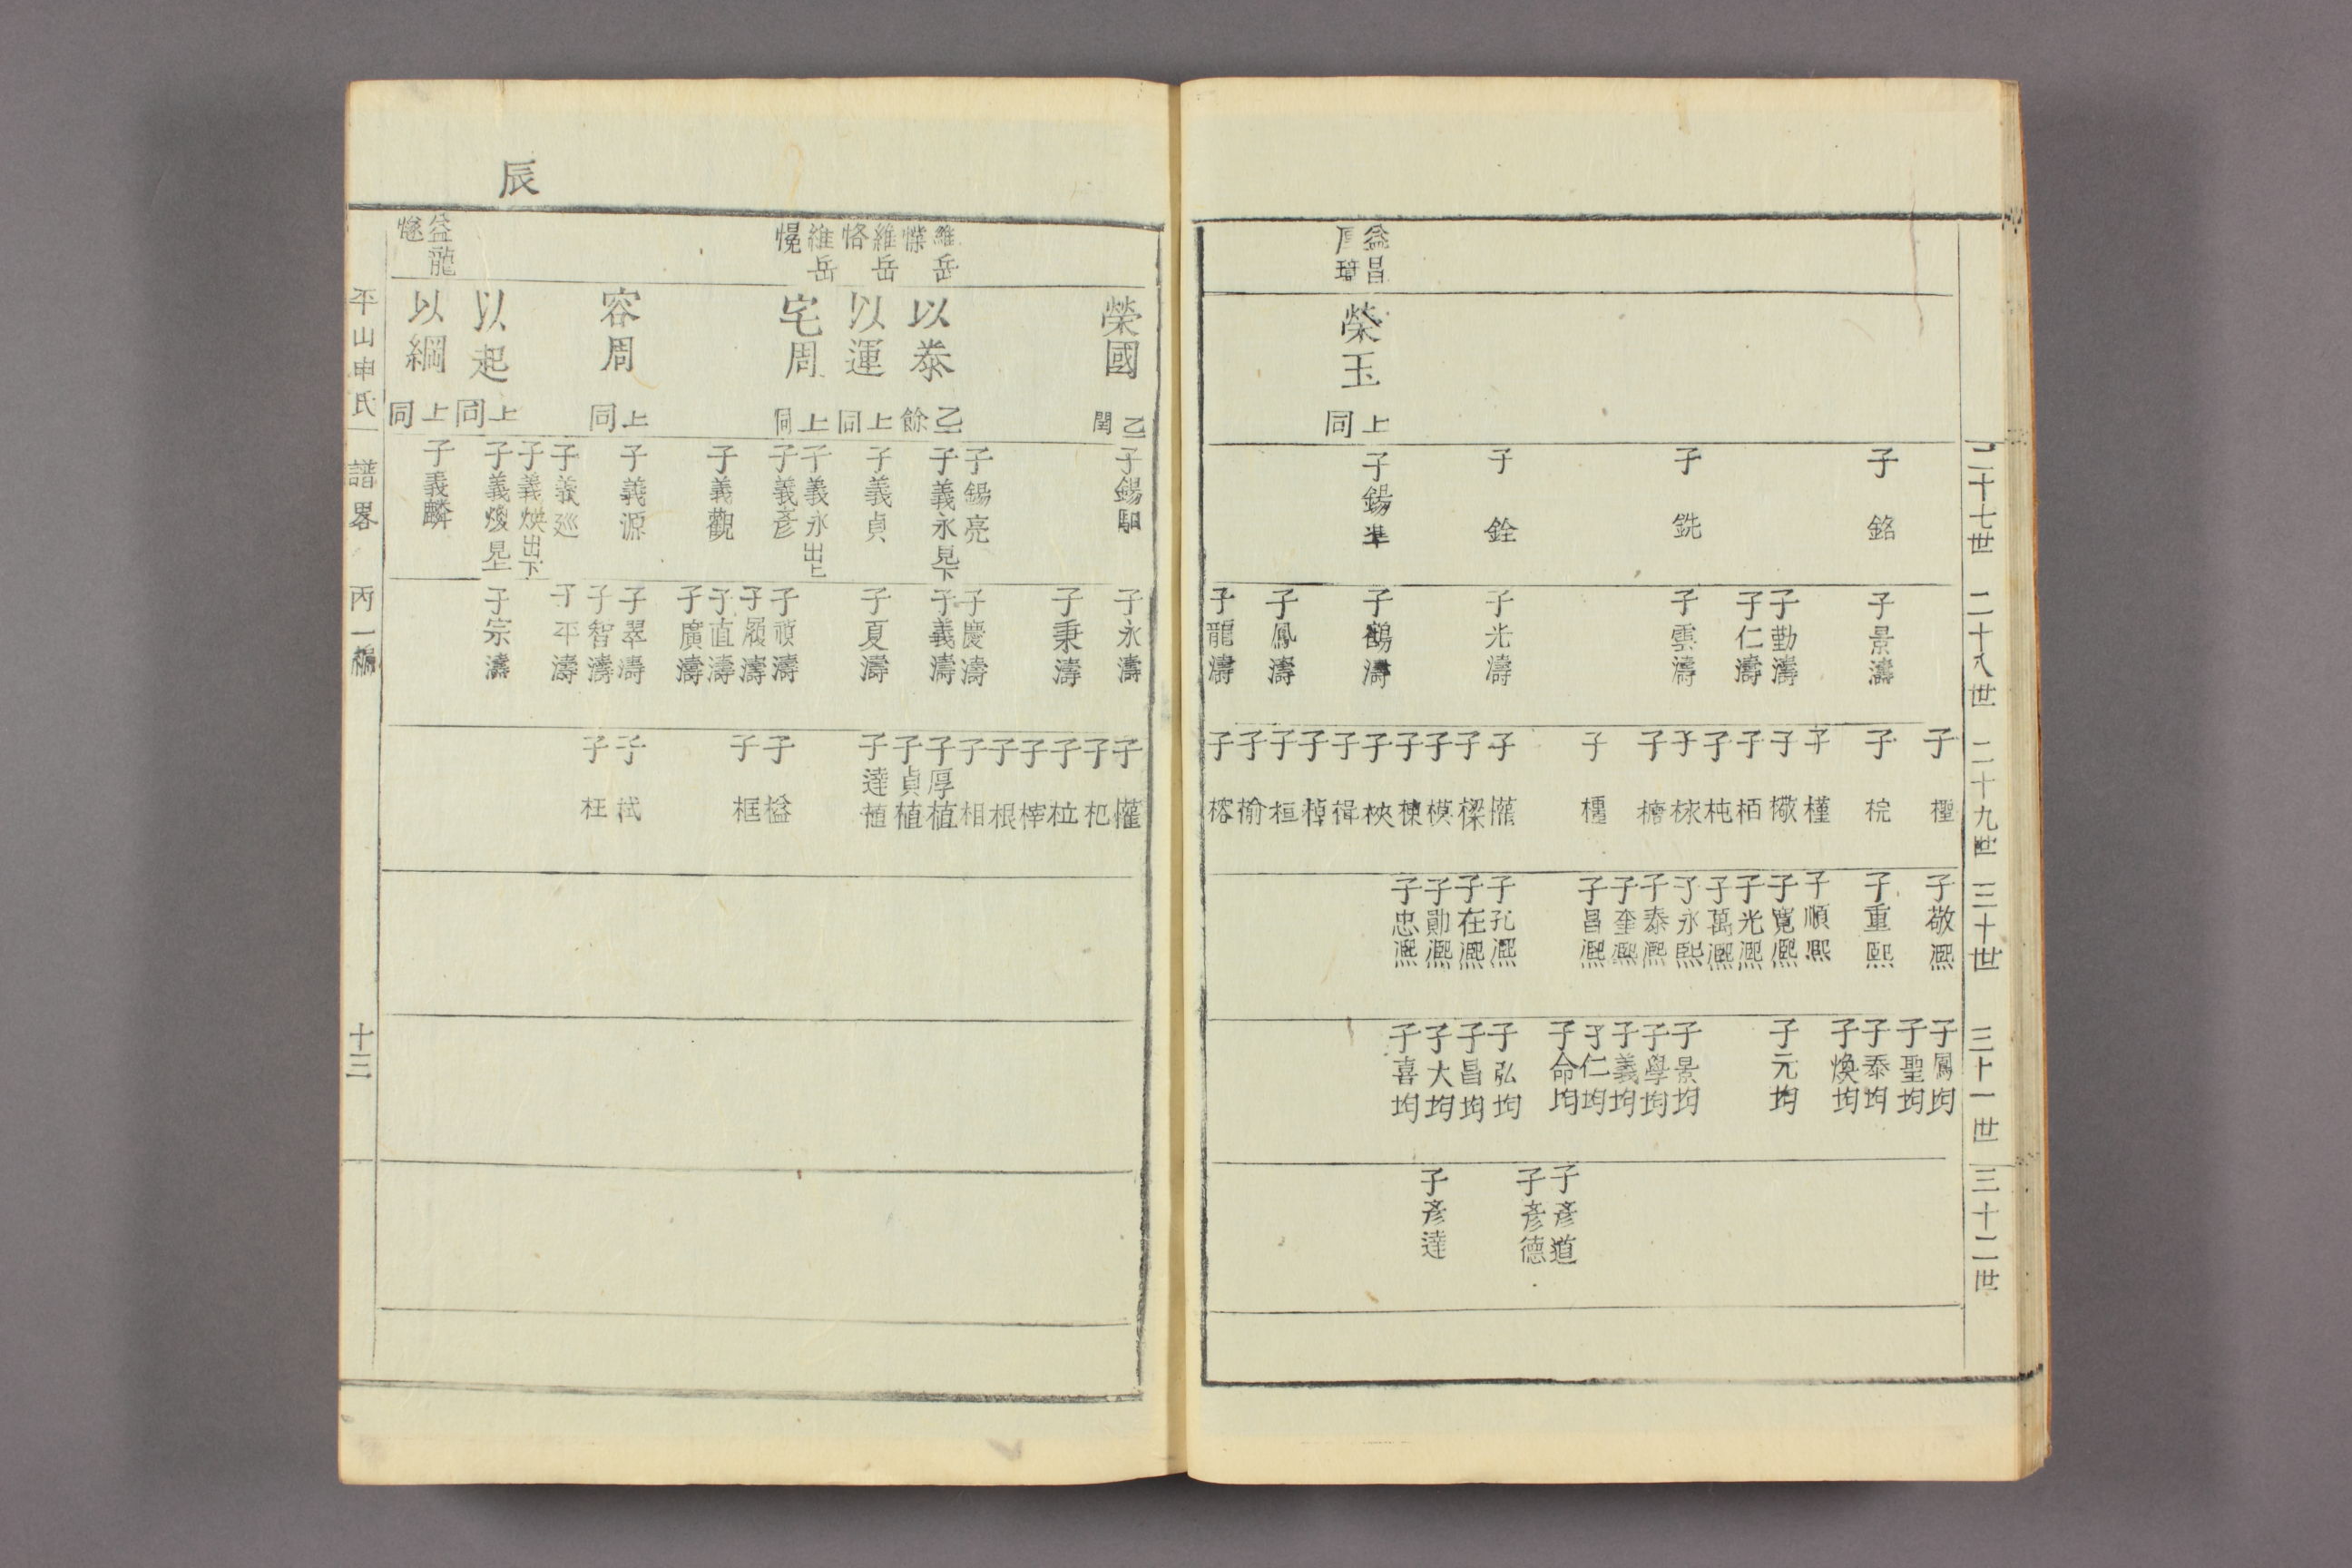 二十七世
二十八世
二十九世
三十世
三十一世
三十二世
益昌
榮玉
上同
子銘
子銑
子銓
子錫準
子景濤
子勤濤
子仁濤
子雲濤
子光濤
子鶴濤
子鳳濤
子龍濤
子檉
子梡
子槿
子橄
子栢
子杶
子楙
子櫨
子欋
子樑
子模
子楝
子柍
子楫
子棹
子桓
子榆
子榕
子敬熙
子重熙
子順熙
子寬熙
子光熙
子萬熙
子永熙
子泰熙
子奎熙
子昌熙
子孔熙
子在熙
子勛熙
子忠熙
子鳳均
子聖均
子泰均
子煥均
子元均
子景均
子學均
子義均
子仁均
子命均
子弘均
子昌均
子大均
子喜均
子彥道
子彥德
子彥達
辰
維岳
維岳
恪
維岳
益龍
榮國
乙閏
以泰
乙餘
以運
上同
宅周
上同
容周
上同
以起
上同
以綱
上同
子錫駰
子錫亮
子義永見下
子義貞
子義永出上
子義彥
子義觀
子義源
子義廵
子義煐出下
子義煐見上
子義麟
子永濤
子秉濤
子慶濤
子義濤
子夏濤
子禎濤
子履濤
子直濤
子廣濤
子翠濤
子智濤
子平濤
子宗濤
子欋
子杞
子柆
子榟
子根
子相
子厚植
子貞植
子達植
子榏
子框
子栻
子枉
平山申氏
譜畧
丙一編
十三